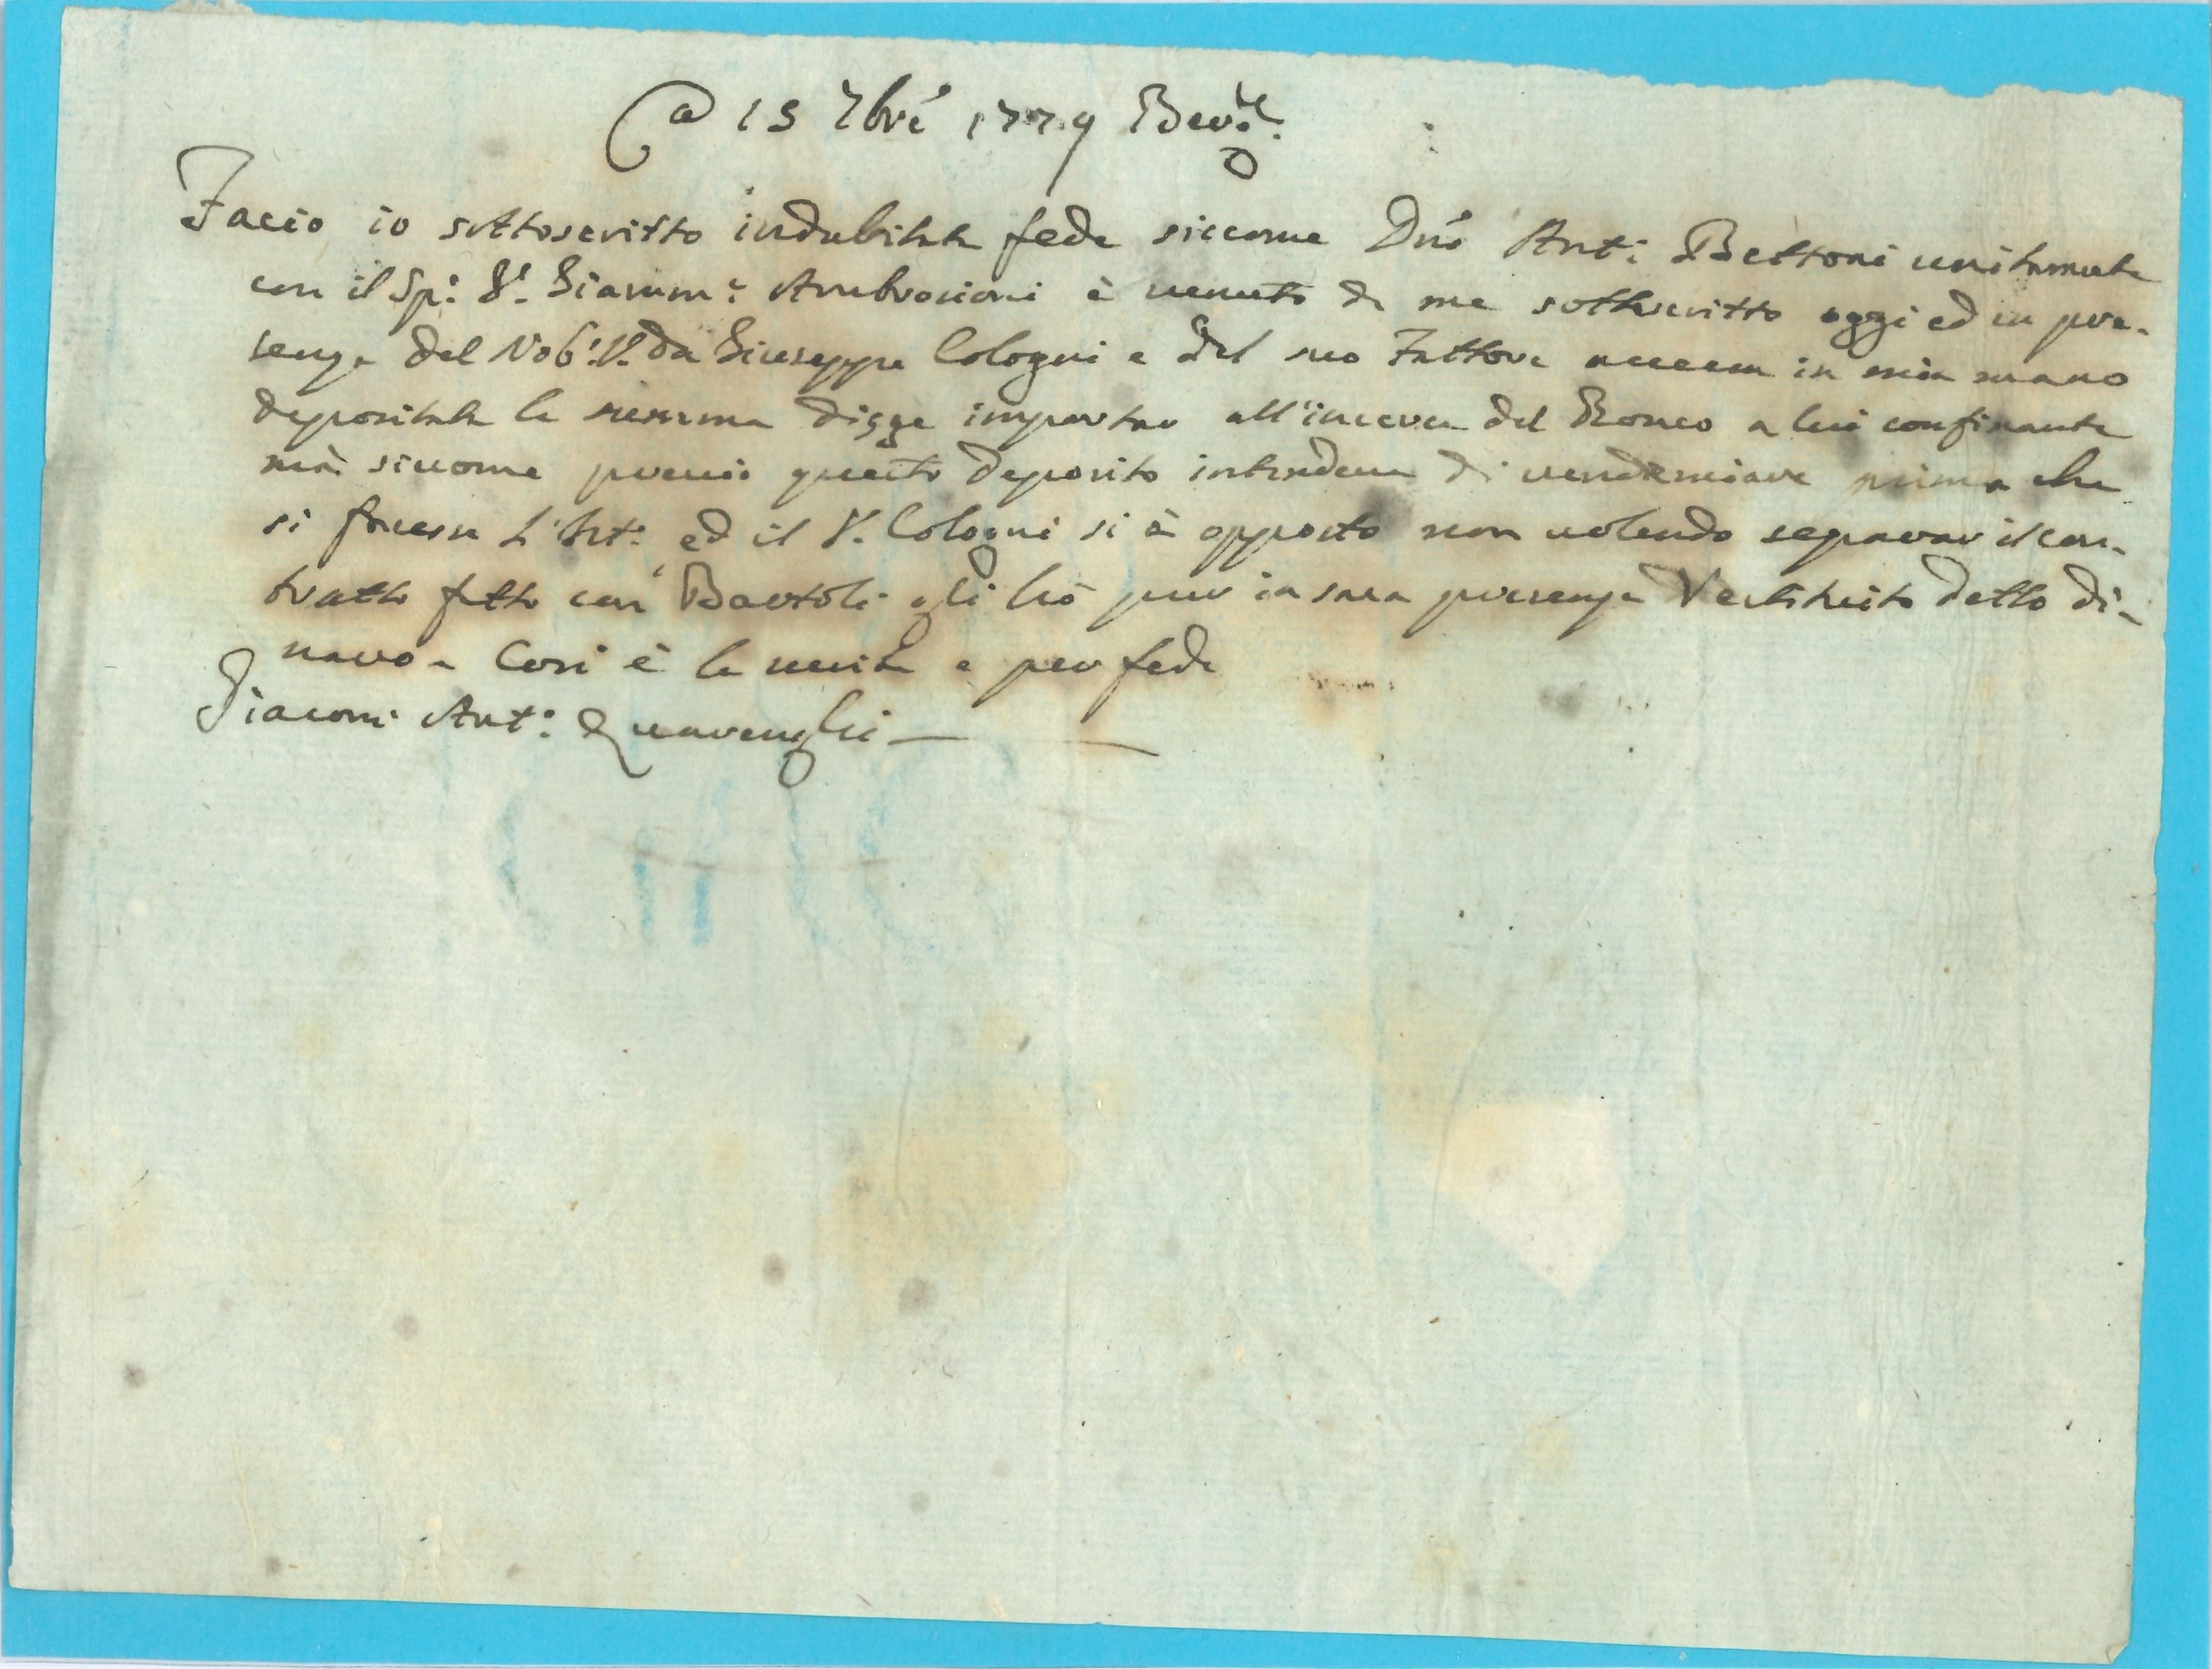 @ 15 7bre 1779 Berg.
Faccio io sottoscritto indubitata fede siccome Dno Ant: Bettoni unitamente
con il Sp: Sr. Giamm: Ambrosioni è venuto da me sottoscritto oggi ed in pre-
senza del Nob: Sr. Giuseppe Cologni e del suo Fattore aveva in mia mano
depositata la somma importar all'incera del Ronco a lui confinante
mà siccome previo questo deposito intendeva di vendemiare prima che
si facesse L'Ist: ed il Sr. Cologni si è opposto non volendo separar il con-
tratto fatto con Bartoli gli hò pur in sua presenza restituito detto di-
naro Cosi è la verità e per fede
Giacom Ant: Quarenghi —